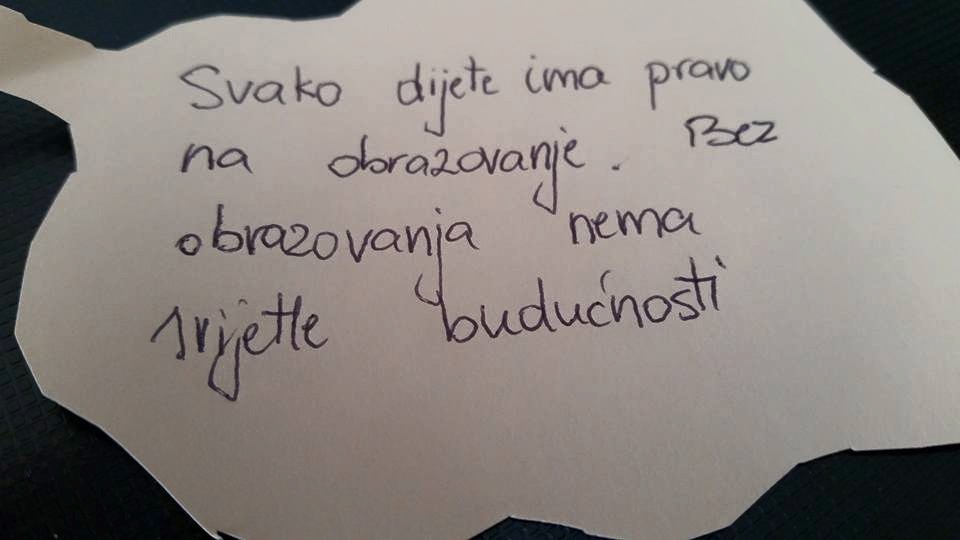 Svako dijete ima pravo
na obrazovanje. Bez
obrazovanja nema
svijetle budućnosti